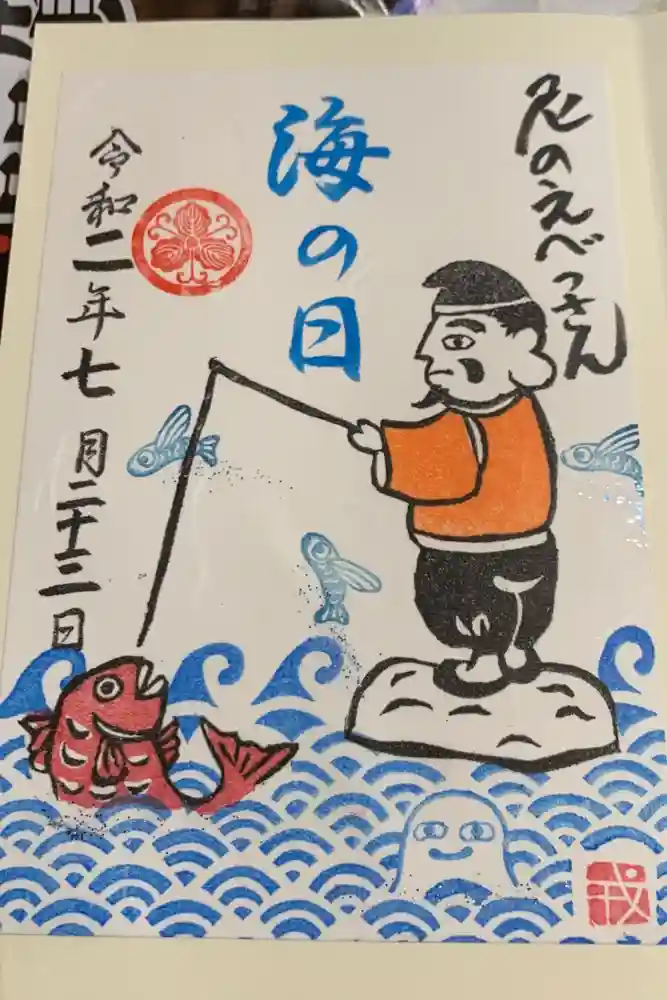 尼のえべっさん
海の日
令和二年七月二十三日
戎